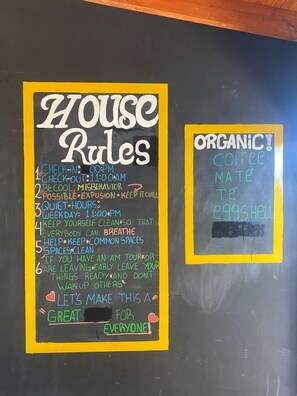 HOUSE
Rules
1 CHECK-IN: 00:PM
CHECK-OUT: 11:00 AM
2 BE COOL; MISBEHAVIOR ?
POSSIBLE • EXPULSION • KEEP IT CHILL
3 QUIET-HOURS:
WEEKDAY: 11:00 PM
4 KEEP YOURSELF CLEAN • SO THAT
EVERYBODY CAN BREATHE
5 HELP • KEEP • COMMON SPACES
SPACES • CLEAN
6 IF YOU HAVE AN AM TOUR • OR
ARE LEAVING EARLY LEAVE YOUR
THINGS READY • AND DON'T
WAKUP OTHERS
LET'S MAKE THIS A
"GREAT FOR
EVERYONE!
ORGANIC!
COFFEE
MATE
TE
eggshell